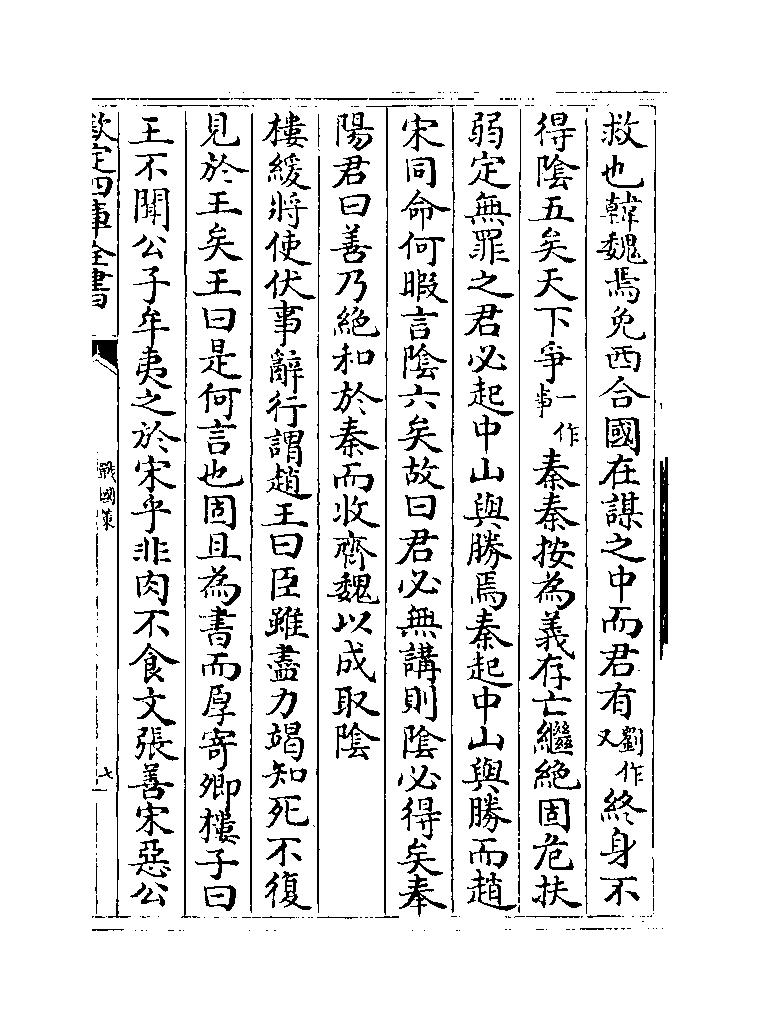 救也韓魏焉免西合國在謀之中而君有劉作又終身不
得陰五矣天下爭一作事秦秦按為義存亡繼絶固危扶
弱定無罪之君必起中山與勝焉秦起中山與勝而趙
宋同命何暇言陰六矣故曰君必無講則陰必得矣奉
陽君曰善乃絶和於秦而收齊魏以成取陰
樓緩將使伏事辭行謂趙王曰臣雖盡力竭知死不復
見於王矣王曰是何言也固且為書而厚寄卿樓子曰
王不聞公子牟夷之於宋乎非肉不食文張善宋惡公
欽定四庫全書
戰國策
七